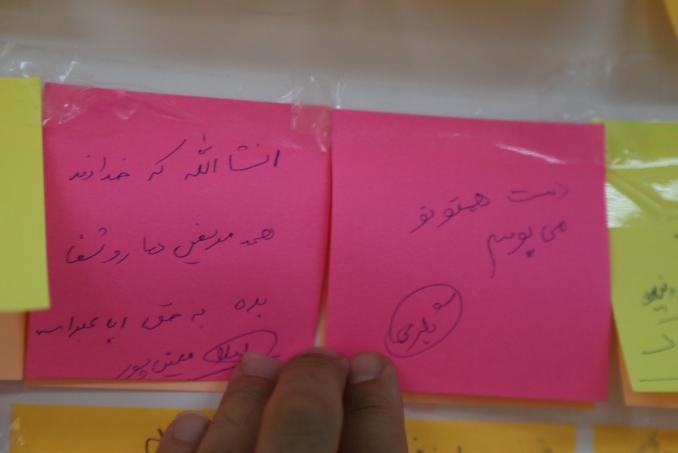 انشاالله که خداوند
همه مریض ها رو شفا
بده به حق ابا عبدالله
لیلا معین پور
دست همتونو
می بوسم